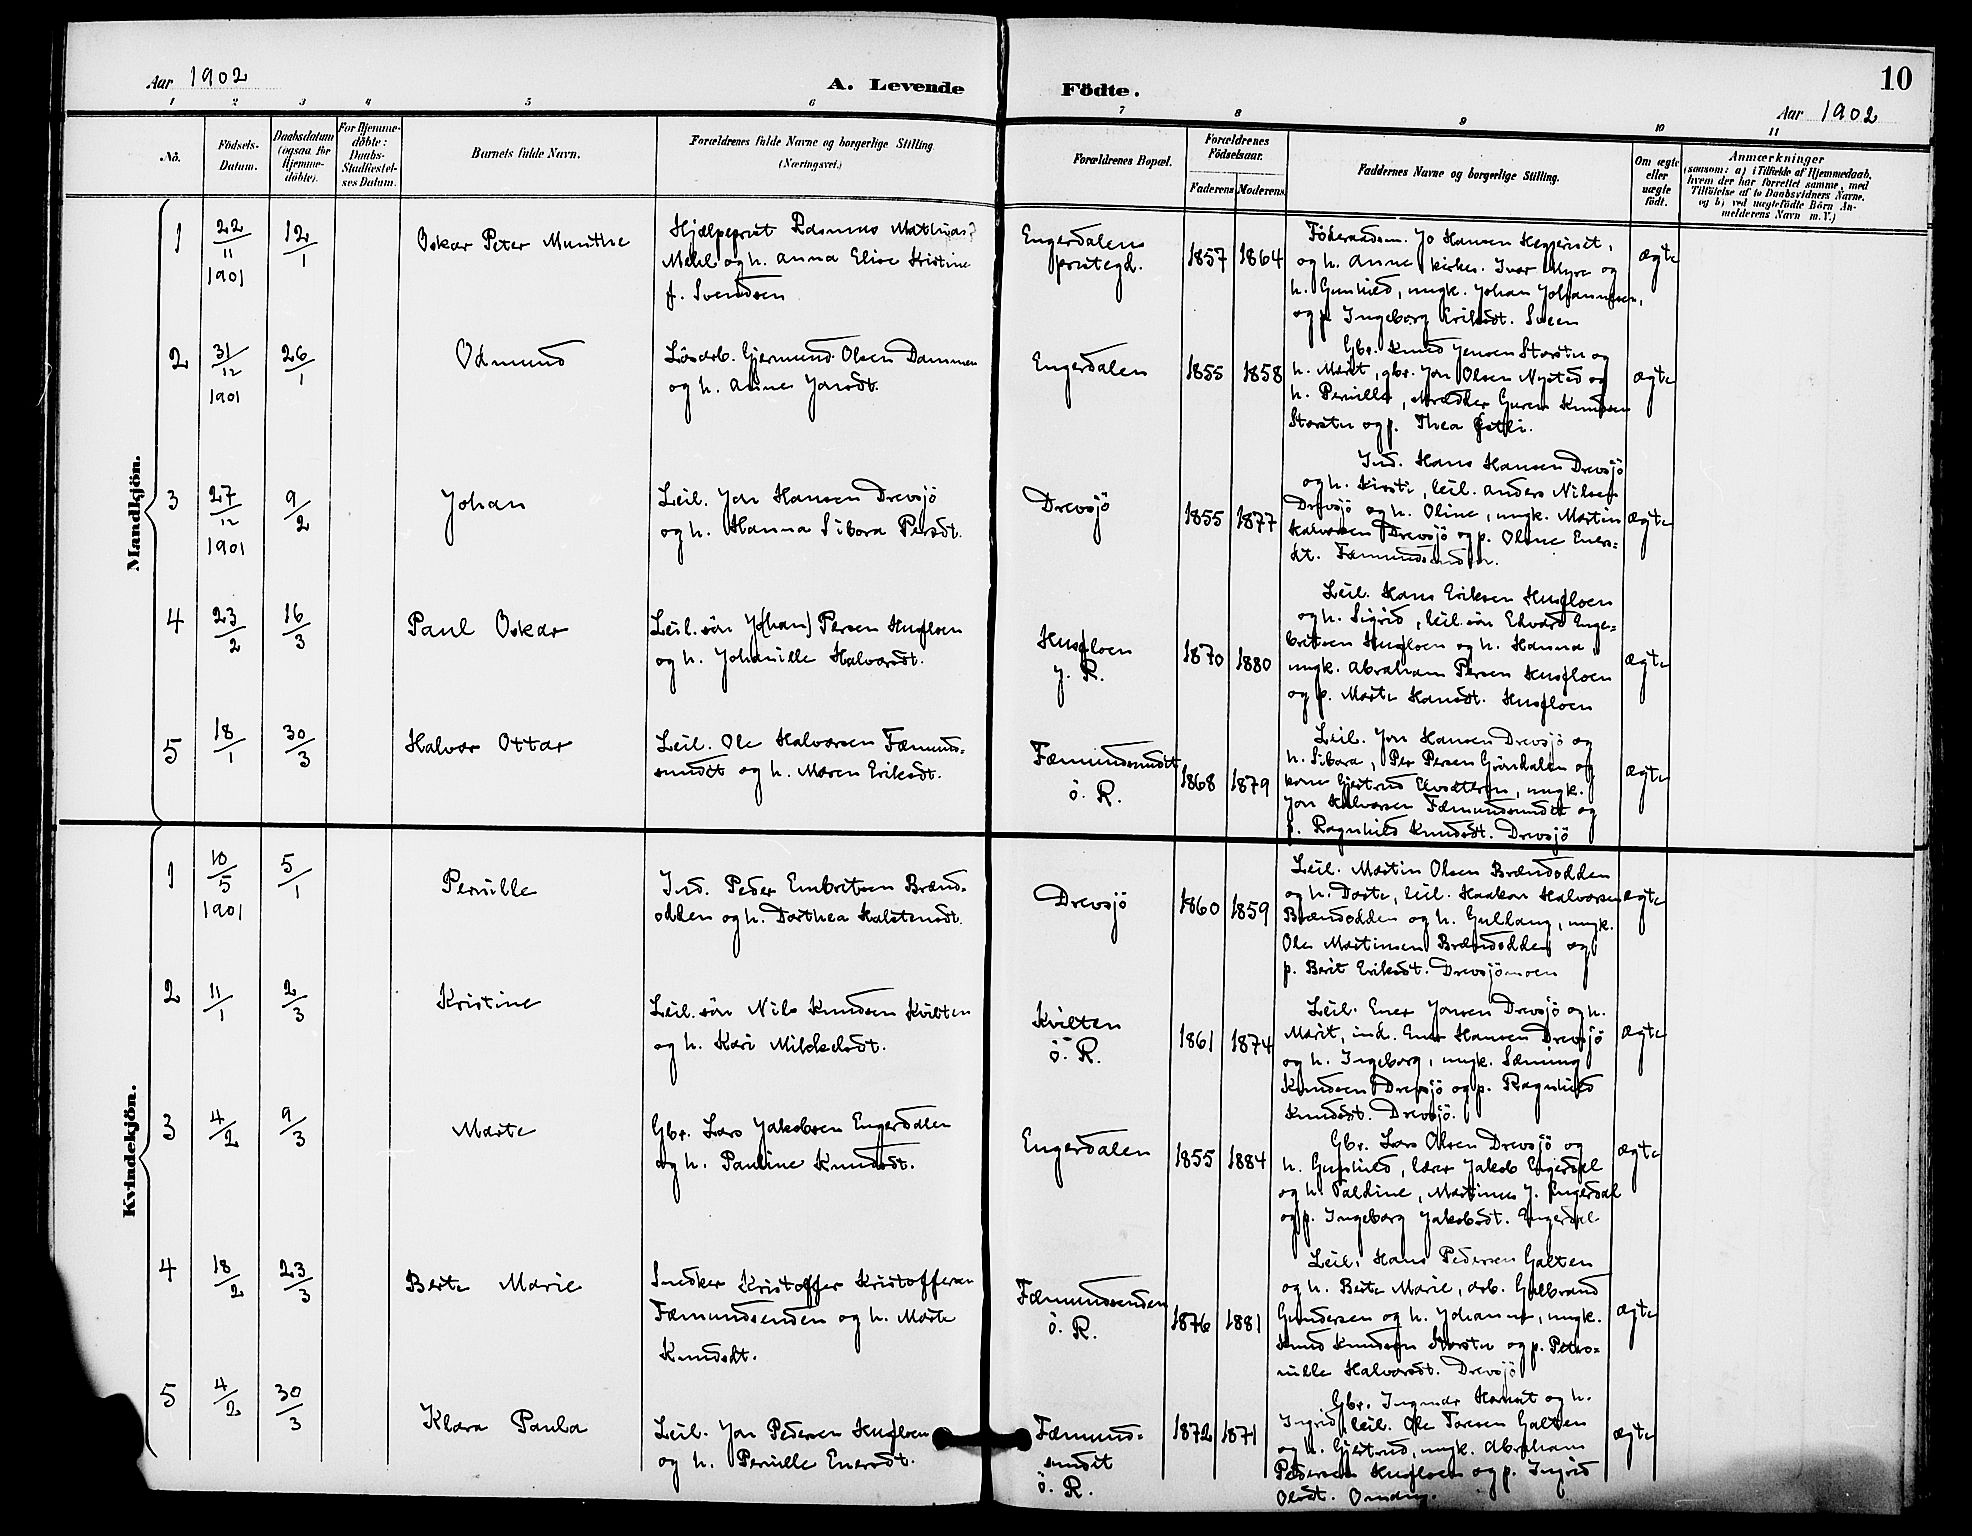 Aar 1902
A. Levende Födte.
10
Aar 1902
1 2 3 4 5 6 7 8 9 10 11
No.
Födsels-
Datum.
Daabsdatum
(ogsaa for
Hjemme-
döbte).
For Hjemme-
döbte:
Daabs-
Stadfæstel-
ses Datum.
Barnets fulde Navn.
Forældrenes fulde Navne og borgerlige Stilling
(Næringsvei.)
Forældrenes Bopæl.
Forældrenes
Födselsaar.
Faderens Moderens
Faddernes Navne og borgerlige Stilling.
Om ægte
eller
uægte
födt.
Anmærkninger
(saasom: a) i Tilfælde af Hjemmedaab,
hvem der har forrettet samme, med
Tilföielse af to Daabsvidners Navne.
og b) ved uægtefödte Börn An-
melderens Navn m. V.)
Mandkjön.
1
22/11
1901
12/1
Oskar Peter Munthe
Hjælpeprest Rasmus Mathias?
Mehl og h. Anna Elise Kristine
f. Svendsen
Engerdalens
prestegd.
1857 1864
Föderaadsm. Jo Hansen
og h. Anne, kirkes. Ivar Myre og
h. Gunhild, ungk. Johan Johannesen,
og p. Ingeborg Eriksdt. Sveen
ægte
2
31/12
1901
26/1
Odmund
Lösarb. Gjermund Olsen Dammen
og h. Anne Jonsdt.
Engerdalen
1855 1858
Gbr. Knud Jensen Storsten og
h. Marit, gbr. Jon Olsen Nysted og
h. Pernille, Guren Knudsen
Storsten og p. Thea
ægte
3
27/12
1901
9/2
Johan
Leil. Jon Hansen Drevsjö
og h. Hanna Sibora Persdt.
Drevsjö
1855 1877
Ind. Hans Hansen Drevsjö
og h. Kirsti, leil. Anders Nilsen
Drevsjö og h. Oline, ungk. Martin
Halvorsen Drevsjö og p. Oline Eners-
dt. Fæmundsenden.
ægte
4
23/2
16/3
Paul Oskar
Leil. sön Jo(han) Persen Husfloen
og h. Johanille Halvorsdt.
Husfloen
y. R.
1870 1880
Leil. Hans Eriksen Husfloen
og h. Sigrid, leil. sön Edvard Enge-
bretsen Husfloen og h. Hanna,
ungk. Abraham Persen Husfloen
og p. Marte Hansdt. Husfloen
ægte
5
18/1
30/3
Halvor Ottar
Leil. Ole Halvorsen Fæmund-
sundet og h. Maren Eriksdt.
Fæmundsundet
ö. R.
1868 1879
Leil. Jon Hansen Drevsjö og
h. Sibora, Per Persen Gröndalen og
kone Gjertrud, ungk.
Jon Halvorsen Fæmundsundet og
p. Ragnhild Knudsdt. Drevsjö
ægte
Kvindekjön.
1
10/5
1901
5/1
Pernille
Ind. Peder Embretsen Brænd-
odden og h. Dorthea Halstensdt.
Drevsjö
1860 1859
Leil. Martin Olsen Brændodden
og h. Dorte, leil. Haakon Halvorsen
Brændodden og h. Gullaug, ungk.
Ole Martinsen Brændodden og
p. Berit Eriksdt. Drevsjömoen
ægte
2
11/1
2/3
Kristine
Leil. sön Nils Knudsen Kvilten
og h. Kari Mikkelsdt.
Kvilten
ö. R.
1861 1874
Leil. Ener Jonsen Drevsjö og h.
Marit, ind. Ener Hansen Drevsjö
og h. Ingeborg, ungk. Sæming
Knudsen Drevsjö og p. Ragnhild
Knudsdt. Drevsjö.
ægte
3
4/2
9/3
Marte
Gbr. Lars Jakobsen Engerdalen
og h. Pauline Knudsdt.
Engerdalen
1855 1884
Gbr. Lars Olsen Drevsjö og
h. Gunhild, lærer Jakob Engerdal
og h. Valdine, Martinus J. Engerdal
og p. Ingeborg Jakobsdt. Engerdal
ægte
4
18/2
23/3
Berte Marie
Snedker Kristoffer Kristoffersen
Fæmundsenden og h. Marte
Knudsdt.
Fæmundsenden
ö. R.
1876 1881
Leil. Hans Pedersen Galten
og h. Berte Marie, arb. Gulbrand
Gundersen og h. Johanne, ungk.
Knud Knudsen Storsten og p. Petro-
nille Halvorsdt. Drevsjö
ægte
5
4/2
30/3
Klara Paula
Leil. Jon Pedersen Husfloen
og h. Pernille Enersdt.
Fæmund-
sundet
ö. R.
1872 1871
Gbr. Ingmar og h.
Ingrid, leil. Ole Toresen Galten
og h. Gjertrud, ungk. Abraham
Pedersen Husfloen og p. Ingrid
Olsdt.
ægte